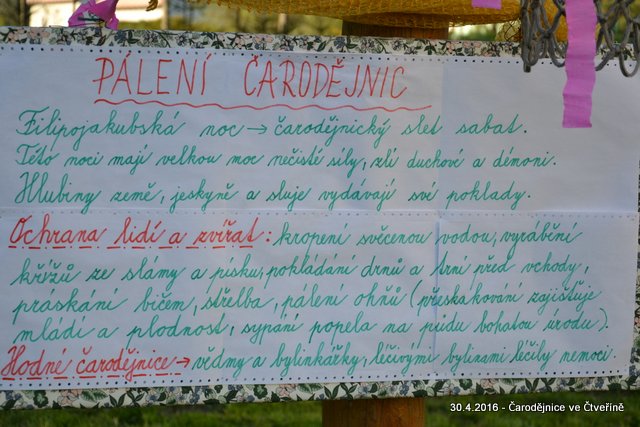 PÁLENÍ ČARODĚJNIC
Filipojakubská noc → čarodějnický slet sabat.
Této noci mají velkou moc nečisté síly, zlí duchové a démoni.
Hlubiny země, jeskyně a sluje vydávají své poklady.
Ochrana lidí a zvířat: kropení svěcenou vodou, vyrábění
křížů ze slámy a písku, pokládání drnů a trní před vchody,
praskání bičem, střelba, pálení ohňů (přeskakování zajišťuje
mládí a plodnost, sypání popela na půdu bohatou úrodu).
Hodné čarodějnice → vědmy a bylinkářky, léčivými bylinami léčily nemoci.
30.4.2016 - Čarodějnice ve Čtveříně